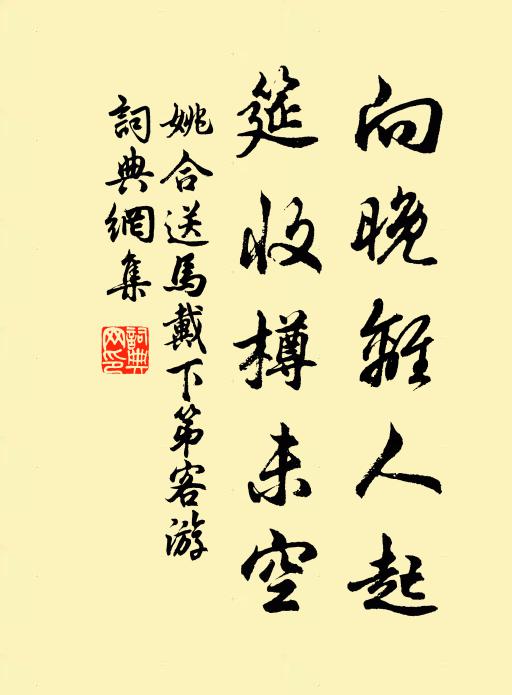 向晚離人起
筵收樽未空
姚合送馬戴下第客游
詞典網集
詞典網印